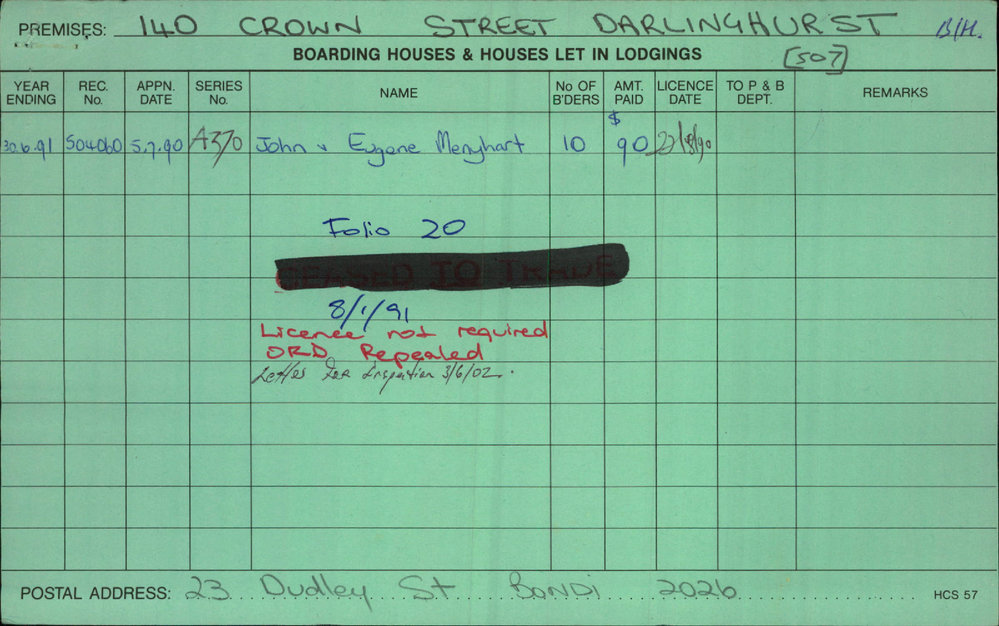 PREMISES: 140 CROWN STREET DARLINGHURST B/H.
BOARDING HOUSES & HOUSES LET IN LODGINGS [507]
YEAR ENDING REC. No. APPN. DATE SERIES No. NAME No OF B'DERS AMT. PAID LICENCE DATE TO P & B DEPT. REMARKS
30.6.91 504060 5.7.90 A370 John & Eugene Menyhart 10 $90 22/8/90
Folio 20
CEASED TO TRADE
8/1/91
Licence not required
ORD. Repealed
Letter for Inspection 3/6/02.
POSTAL ADDRESS: 23 Dudley St Bondi 2026 HCS 57